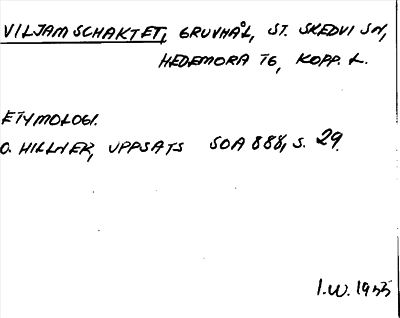 VILJAMSCHAKTET, GRUVHÅL, ST. SKEDVI SN,
HEDEMORA TG, KOPP. L.
ETYMOLOGI.
O. HILLNER, UPPSATS SOA 888, S. 29.
I.W. 1955